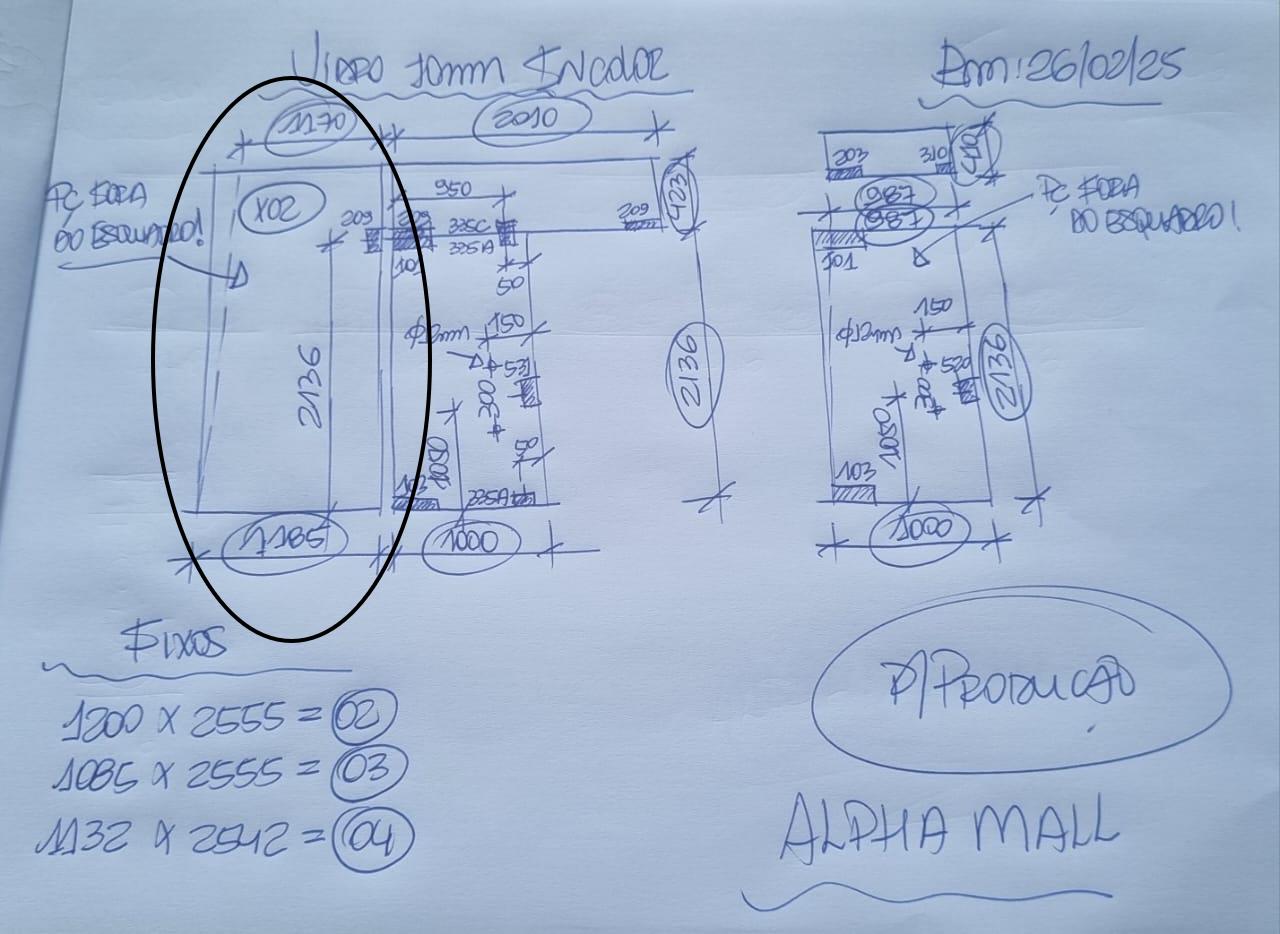 VIDRO 10mm INCOLOR
Em: 26/02/25
1170
2010
PÇ FORA
DO ESQUADRO!
X02
950
209
209
335C
335A
209
423
101
50
150
531
300
2136
1050
50
103
335A
2136
1185
1000
203
310
410
987
987
PÇ FORA
DO ESQUADRO!
101
150
520
300
2136
1050
103
1000
FIXOS
1200 X 2555 = 02
1085 X 2555 = 03
1132 X 2542 = 04
P/PRODUÇÃO
ALPHA MALL